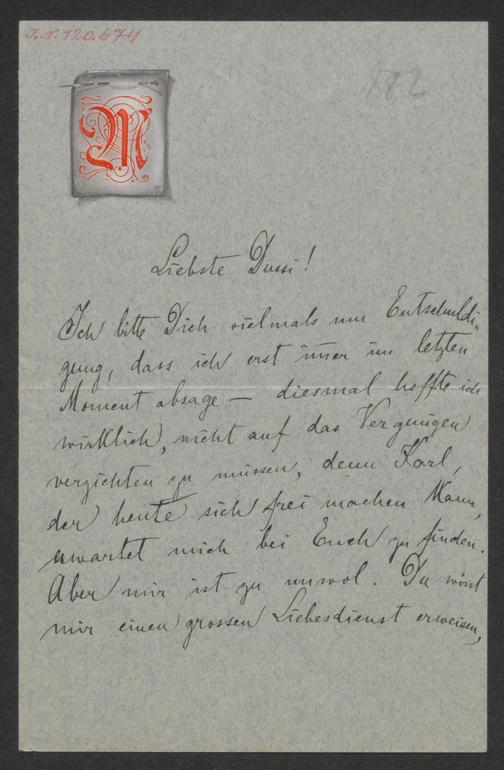 J.N. 120.674
182
M
Liebste Dussi!
Ich bitte Dich vielmals um Entschuldi-
gung, dass ich erst im̄er im letzten
Moment absage — diesmal hoffte ich
wirklich, nicht auf das Vergnügen
verzichten zu müssen, denn Karl,
der heute sich frei machen kann,
erwartet mich bei Euch zu finden.
Aber mir ist zu unwol. Du wirst
mir einen grossen Liebesdienst erweisen,